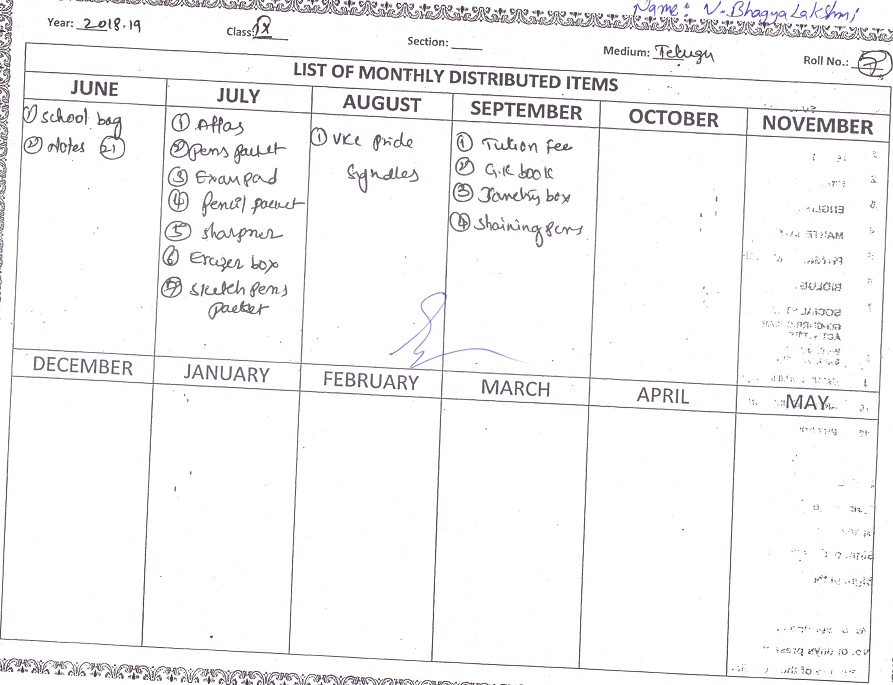 Name: N. Bhagya Lakshmi
Year: 2018.19 Class: IX Section: ____ Medium: Telugu Roll No.: 7
LIST OF MONTHLY DISTRIBUTED ITEMS
JUNE
① School bag
② Notes 21
JULY
① Atlas
② Pens packet
③ Exam pad
④ Pencil packet
⑤ Sharpner
⑥ Erazer box
⑦ Sketch pens
packet
AUGUST
① Vke pride
Syndles
SEPTEMBER
① Tution Fee
② G.K book
③ Jametry box
④ Shaining pens
OCTOBER
NOVEMBER
DECEMBER
JANUARY
FEBRUARY
MARCH
APRIL
MAY